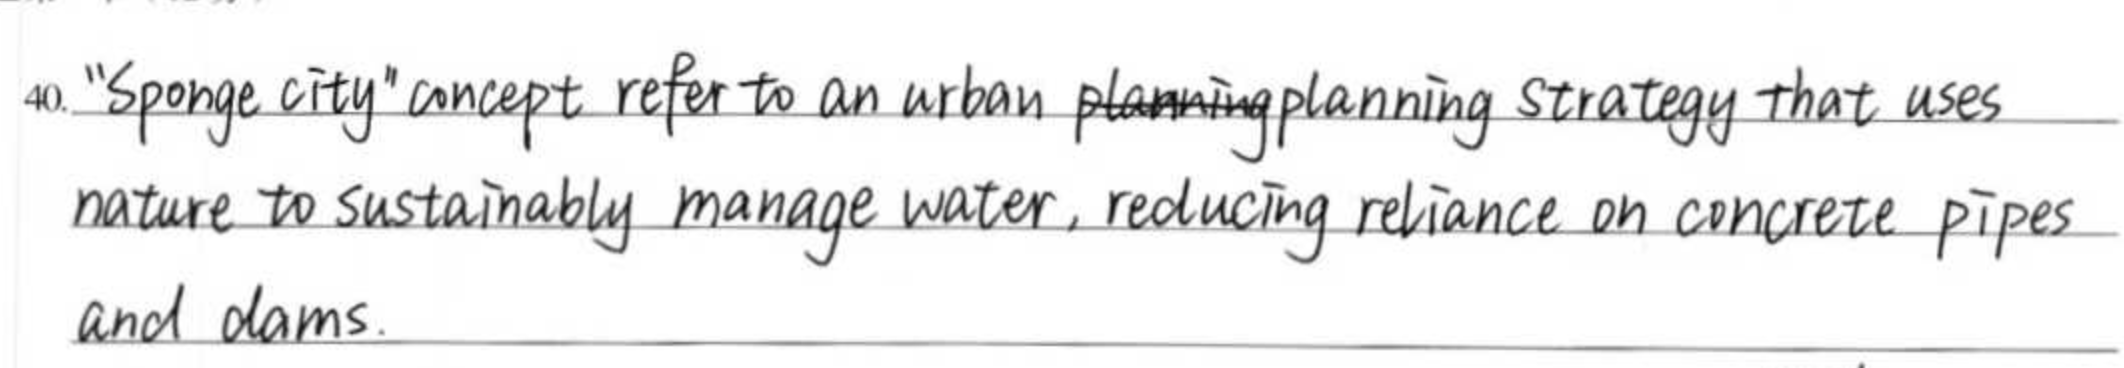 40. "Sponge city" concept refer to an urban planning planning strategy that uses
nature to sustainably manage water, reducing reliance on concrete pipes
and dams.